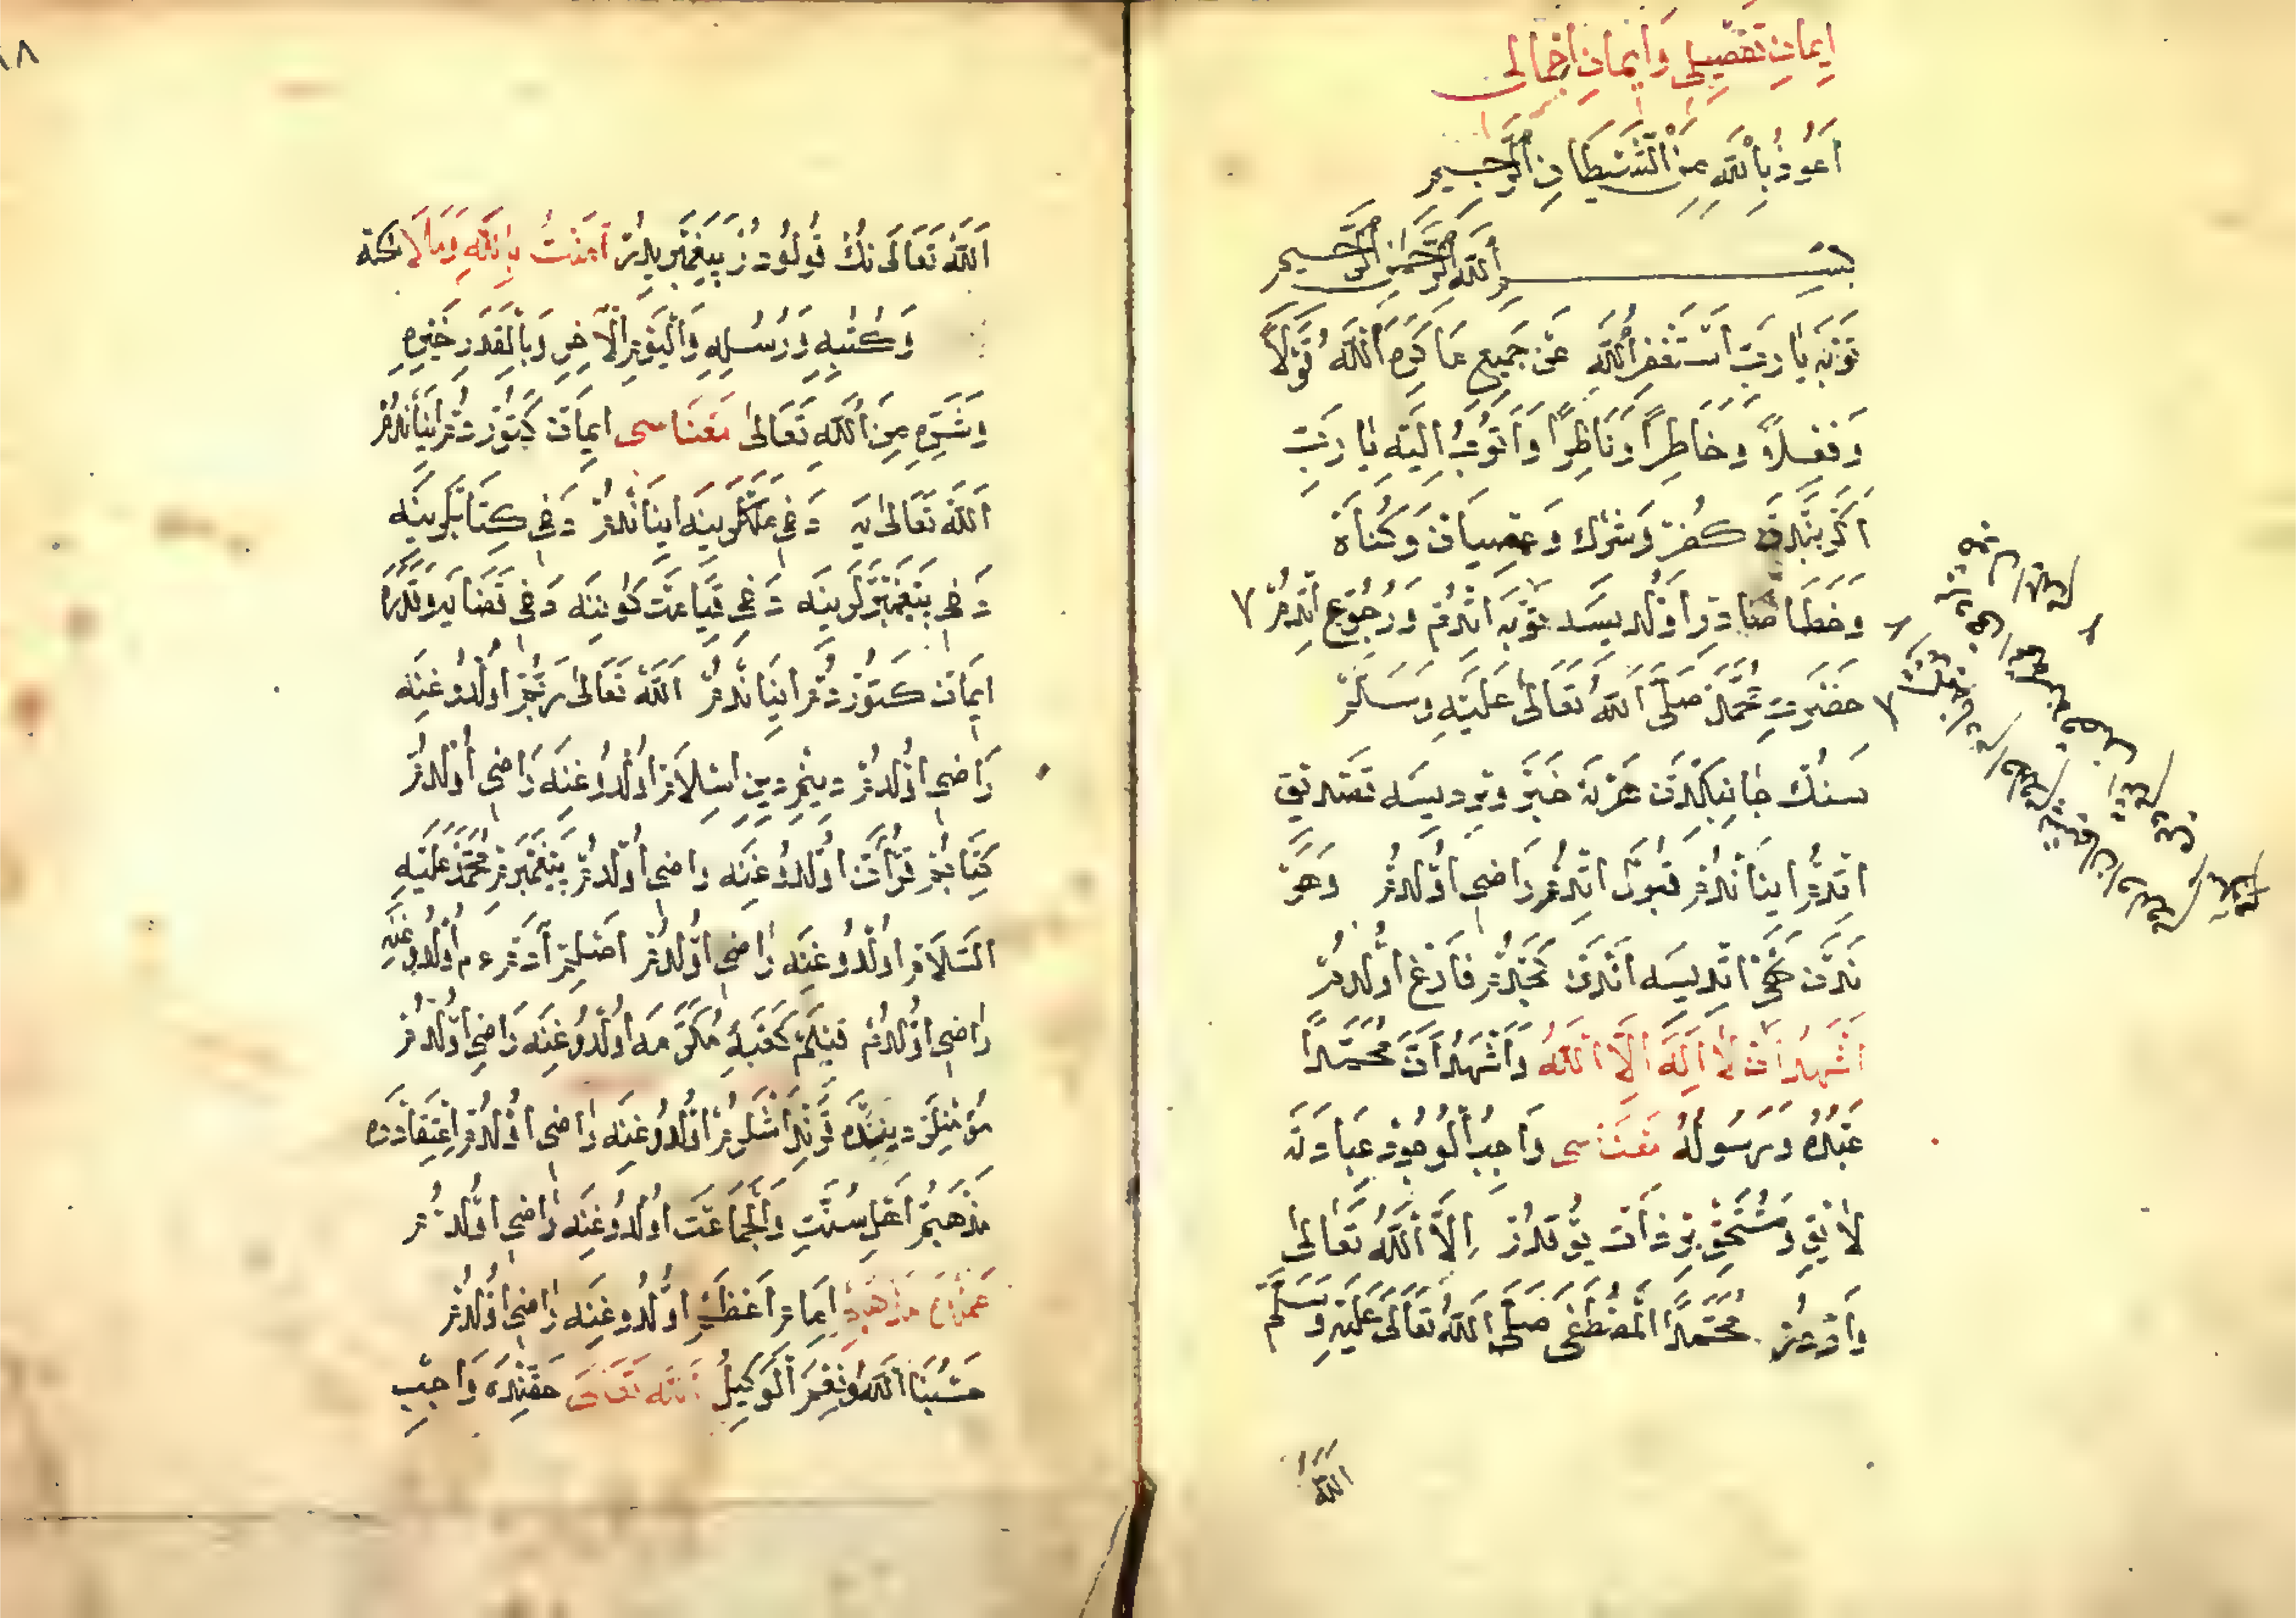 اِيمَانِ تَفْصِيلِى وَاِيمَانِ اِجْمَالِى
اَعُوذُ بِاللّٰهِ مِنَ الشَّيْطَانِ الرَّجِيمِ
بِسْمِ اللّٰهِ الرَّحْمٰنِ الرَّحِيمِ
تَوْبَه يَا رَبِّ اَسْتَغْفِرُ اللّٰهَ عَنْ جَمِيعِ مَا كَرِهَ اللّٰهُ قَوْلًا
وَفِعْلًا وَخَاطِرًا وَنَاظِرًا وَاَتُوبُ اِلَيْهِ يَا رَبِّ
كُفْرْ وَشِرْكْ وَعِصْيَانْ وَكُنَاهْ
وَخَطَا صَادِرْ اَوْلْدِيسَه تَوْبَه اَتْدِمْ وَرُجُوعْ اَتْدِمْ ٧
حَضْرَتِ مُحَمَّدْ صَلَّى اللّٰهُ تَعَالٰى عَلَيْهِ وَسَلَّمْ
سَنُكْ جَانِبِكْدَنْ هَرْ نَه خَبَرْ وِيرْدِيسَه تَصْدِيقْ
اِتْدِمْ اِينَانْدُمْ قَبُولْ اِتْدِمْ رَاضِى اُولْدُمْ وَهَرْ
نَدَنْ نَهْىْ اِتْدِيسَه اَنْدَنْ فَارِغْ اُولْدُمْ
اَشْهَدُ اَنْ لَا اِلٰهَ اِلَّا اللّٰهُ وَاَشْهَدُ اَنَّ مُحَمَّدًا
عَبْدُهُ وَرَسُولُهُ مَعْنَاسِى وَاجِبُ الْوُجُودْ عِبَادَتَه
لَايِقْ وَمُسْتَحِقْ بِرْ ذَاتْ يُوقْدُرْ اِلَّا اللّٰهُ تَعَالٰى
مُحَمَّدًا الْمُصْطَفٰى صَلَّى اللّٰهُ تَعَالٰى عَلَيْهِ وَسَلَّمْ
اللّٰه
اَللّٰهُ تَعَالَى نُكْ قُولُودُرْ بَيْغَمْبَرِيدُرْ اٰمَنْتُ بِاللّٰهِ وَمَلَائِكَتِه
وَكُتُبِهِ وَرُسُلِهِ وَالْيَوْمِ الْاٰخِرِ وَبِالْقَدَرِ خَيْرِهِ
وَشَرِّهِ مِنَ اللّٰهِ تَعَالٰى مَعْنَاسِى اِيمَانْ كَتُورْدُمْ اِينَانْدُمْ
اَللّٰهُ تَعَالٰى يَه دَخِى مَلَكْلَرِينَه اِينَانْدُمْ دَخِى كِتَابْلَرِينَه
دَخِى بَيْغَمْبَرْلَرِينَه دَخِى قِيَامَتْ كُونِنَه دَخِى قَضَايَه وَقَدَرَه
اِيمَانْ كَتُورْدُمْ اِينَانْدُمْ اَللّٰهُ تَعَالٰى رَبُّمْ اُولْدُوغِنَه
رَاضِى اُولْدُمْ دِينِمْ دِينِ اِسْلَامْ اُولْدُوغِنَه رَاضِى اُولْدُمْ
كِتَابُمْ قُرْاٰنْ اُولْدُوغِنَه رَاضِى اُولْدُمْ بَيْغَمْبَرِمْ مُحَمَّدْ عَلَيْهِ
السَّلَامْ اُولْدُوغِنَه رَاضِى اُولْدُمْ اَصْلِمْ اٰدَمْ ع م اُولْدُوغِنَه
رَاضِى اُولْدُمْ قِبْلَمْ كَعْبَۀِ مُكَرَّمَه اُولْدُوغِنَه رَاضِى اُولْدُمْ
مُؤْمِنْلَرْ دِينْدَه قَرِنْدَاشْلَرُمْ اُولْدُوغِنَه رَاضِى اُولْدُمْ اِعْتِقَادْدَه
مَذْهَبِمْ اَهْلِ سُنَّتْ وَالْجَمَاعَتْ اُولْدُوغِنَه رَاضِى اُولْدُمْ
عَمَلْدَه مَذْهَبِمْ اِمَامِ اَعْظَمْ اُولْدُوغِنَه رَاضِى اُولْدُمْ
حَسْبُنَا اللّٰهُ وَنِعْمَ الْوَكِيلُ اَللّٰهُ تَعَالَى حَقِّنْدَه وَاجِبْ